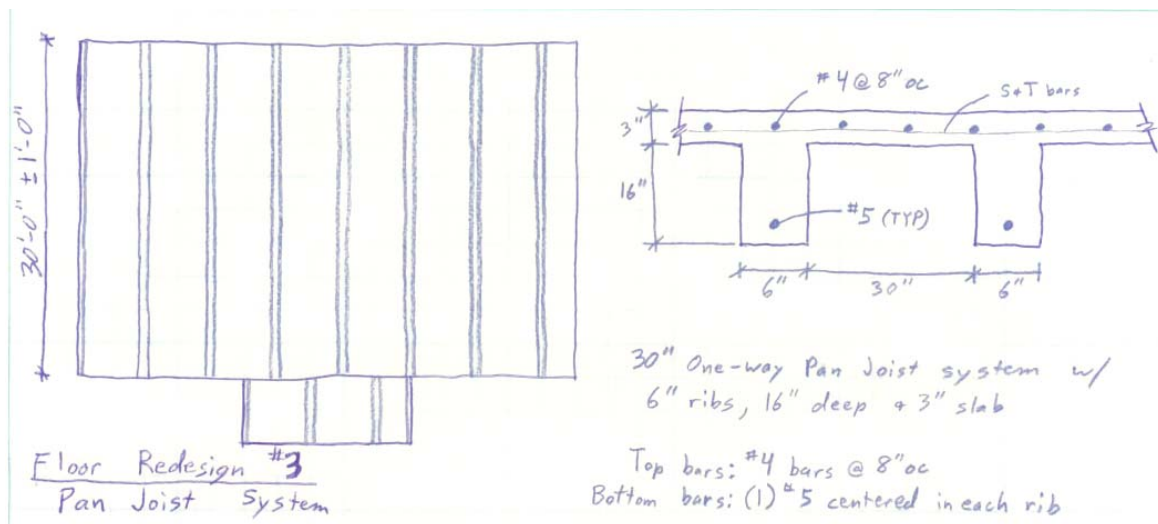 30'-0" ± 1'-0"
Floor Redesign #3
Pan Joist System
#4 @ 8" oc
S+T bars
3"
16"
#5 (TYP)
6"
30"
6"
30" One-way Pan Joist system w/
6" ribs, 16" deep + 3" slab
Top bars: #4 bars @ 8" oc
Bottom bars: (1) #5 centered in each rib